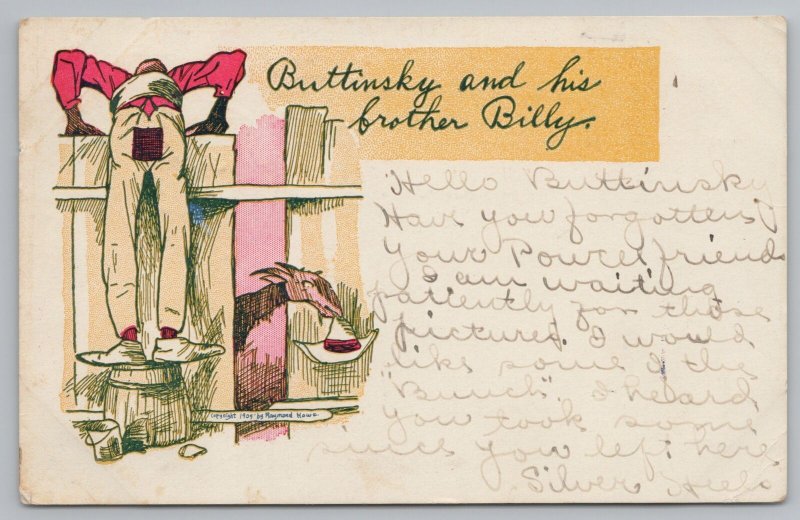 Buttinsky and his
brother Billy.
Hello Buttinsky
Have you forgotten
your friend
I am waiting
patiently for those
pictures. I would
like some of the
"Bunch". I heard
you took some
since you left here
Silver
Copyright 1905 by Raymond Howe